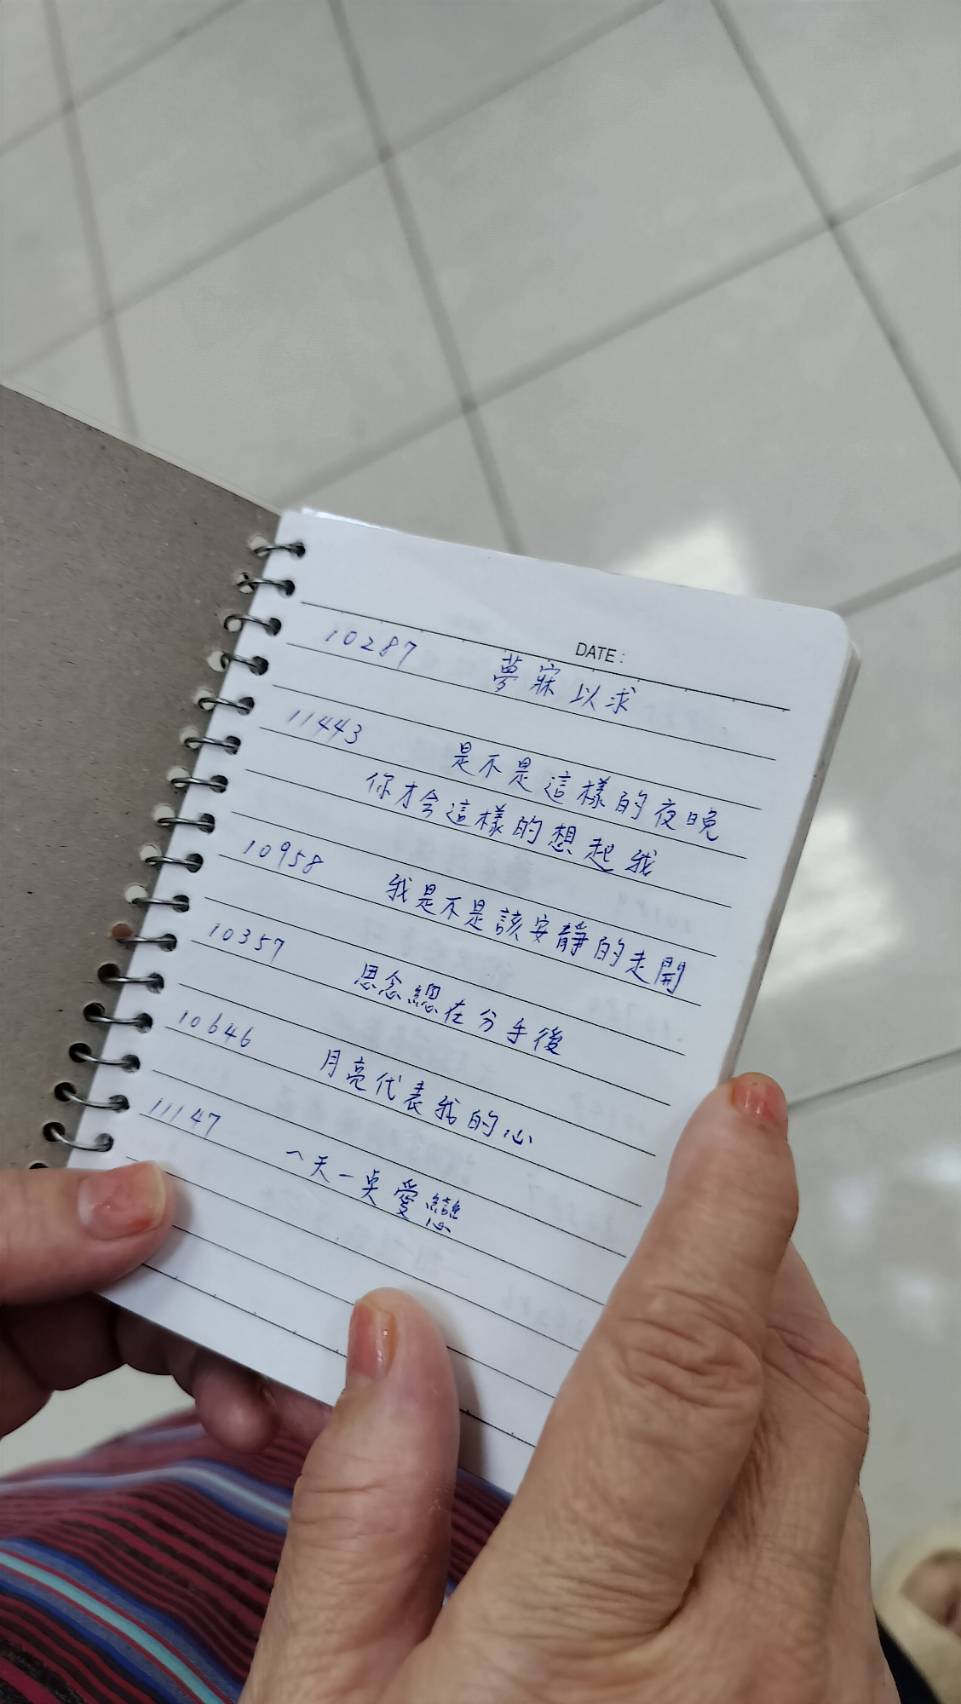 DATE:
10287 夢寐以求
11443 是不是這樣的夜晚
你才会這樣的想起我
10958 我是不是該安靜的走開
10357 思念總在分手後
10646 月亮代表我的心
11147 一天一點愛戀